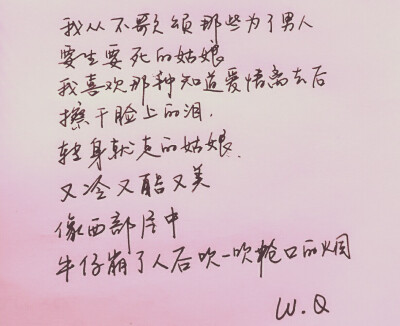 我从不歌颂那些为了男人
要生要死的姑娘
我喜欢那种知道爱情离去后
擦干脸上的泪,
转身就走的姑娘.
又冷又酷又美
像西部居中
牛仔崩了人后吹一吹枪口的烟
W.Q